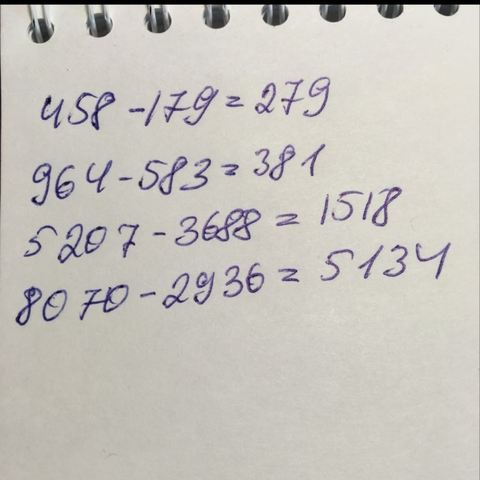 458-179=279
964-583=381
5207-3688=1518
8070-2936=5134